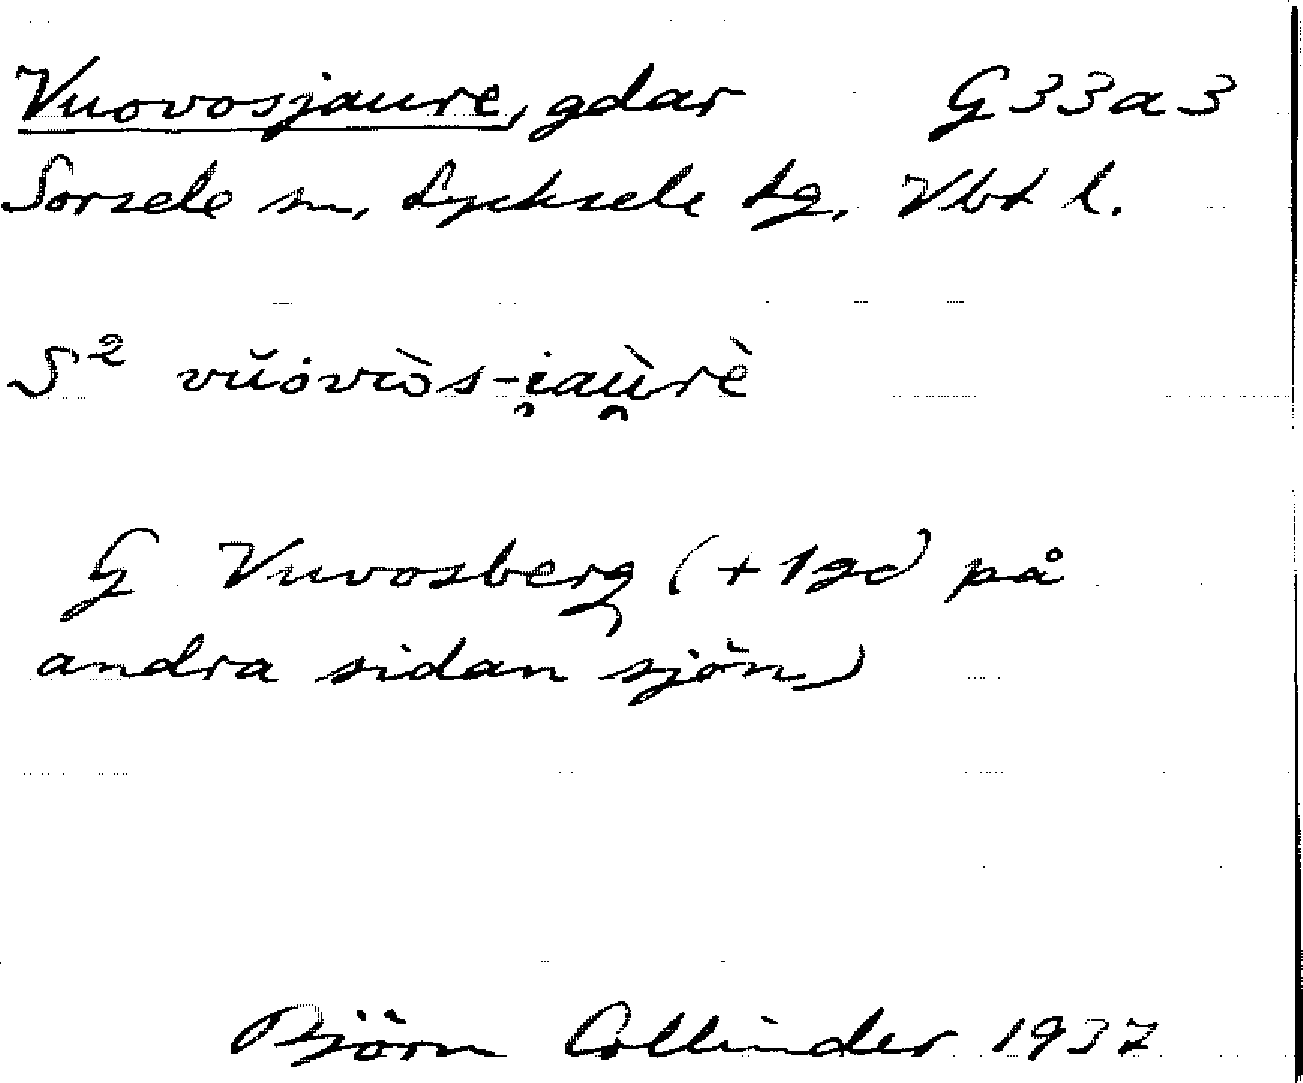 Vuovosjaure, gdar G33a3
Sorsele sn, Lycksele tg, Vbt l.
S² vŭȯvꞷ̀s-i̯aù̯rè
G Vuvosberg (+1 gd på
andra sidan sjön)
Björn Collinder 1937